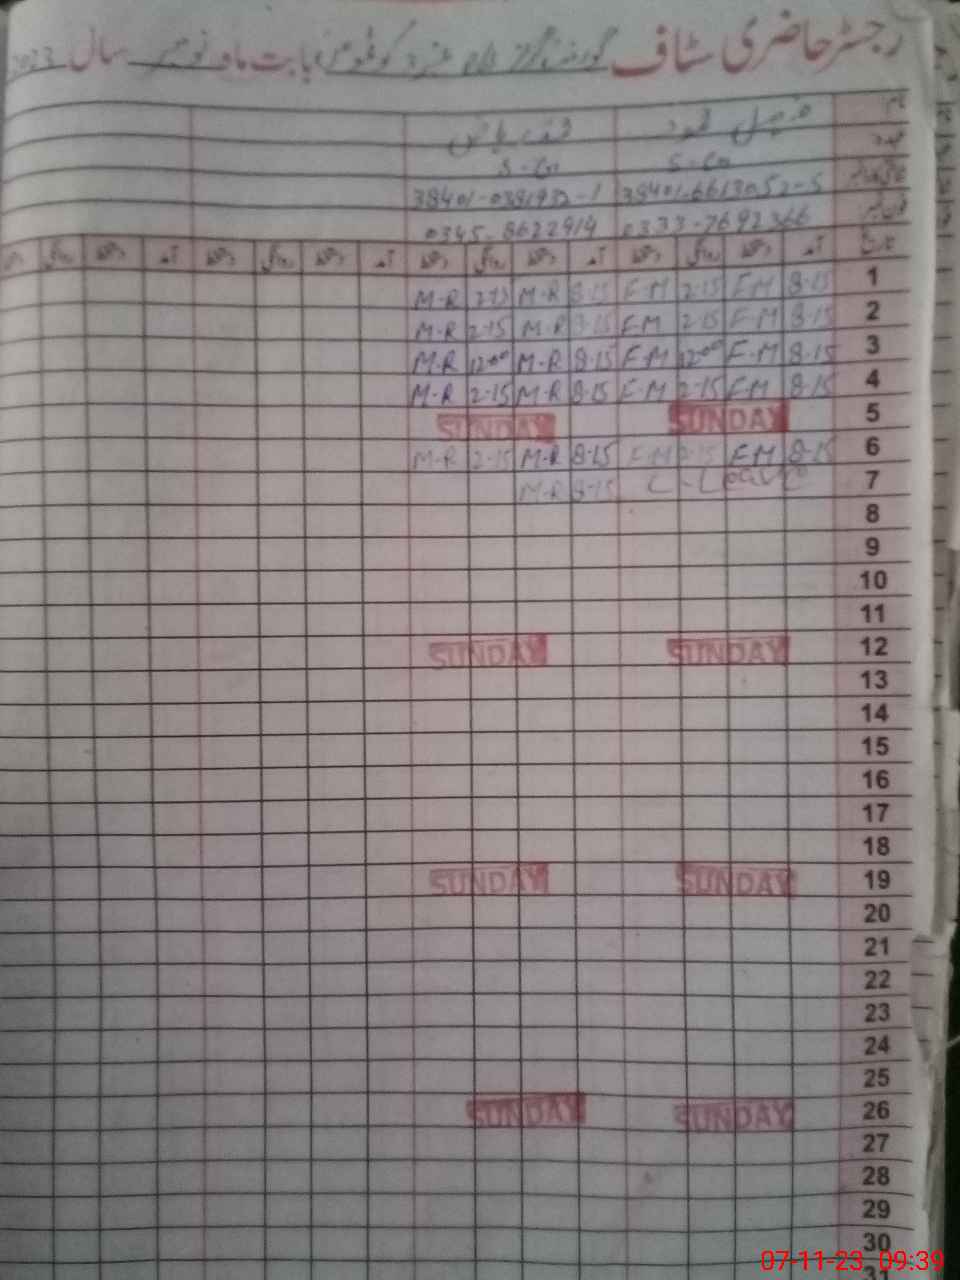 رجسٹر حاضری سٹاف گورنمنٹ گرلز بابت ماہ نومبر سال 2023
نام فیصل محمود
عہدہ S-Gn S-Gn
38401-6613052-5 38401-0381932-1
فون نمبر 0333-7692366 0345-8622914
تاریخ آمد دستخط روانگی دستخط آمد دستخط روانگی دستخط آمد دستخط روانگی دستخط آمد دستخط روانگی دستخط
1 8-15 F-M 2-15 F-M 8-15 M-R 2-15 M-R
2 8-15 F-M 2-15 F-M 8-15 M-R 2-15 M-R
3 8-15 F-M 12-00 F-M 8-15 M-R 12-00 M-R
4 8-15 F-M 2-15 F-M 8-15 M-R 2-15 M-R
5 SUNDAY SUNDAY
6 8-15 F-M 2-15 F-M 8-15 M-R 2-15 M-R
7 C-Leave 8-15 M-R
8
9
10
11
12 SUNDAY SUNDAY
13
14
15
16
17
18
19 SUNDAY SUNDAY
20
21
22
23
24
25
26 SUNDAY SUNDAY
27
28
29
30
31
07-11-23 09:39